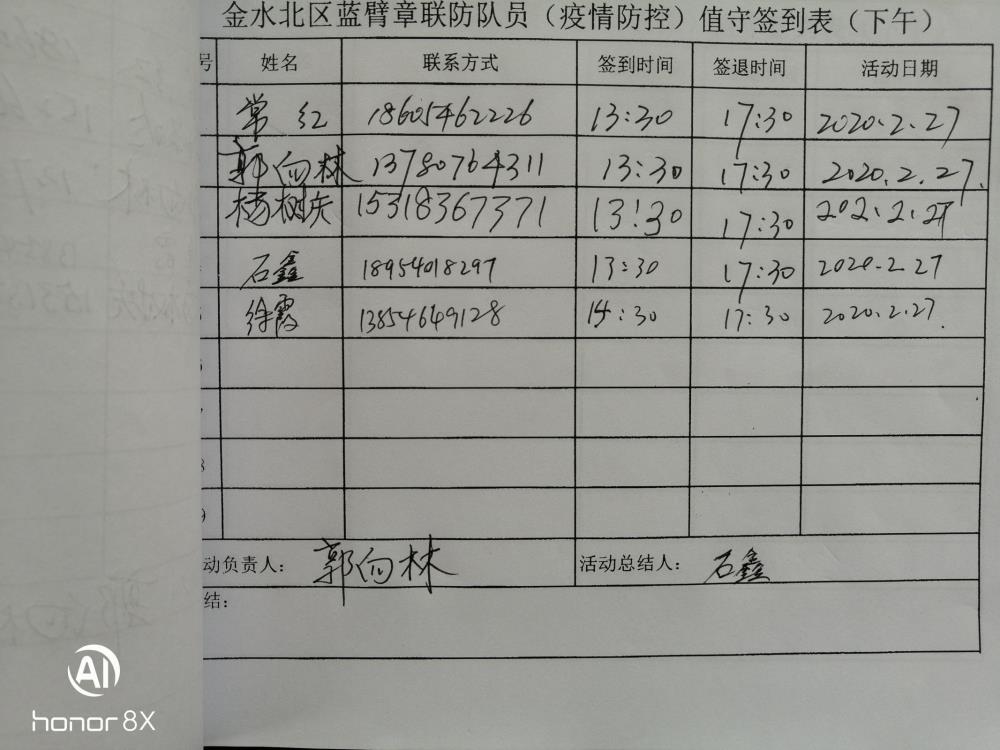 金水北区蓝臂章联防队员（疫情防控）值守签到表（下午）
号 姓名 联系方式 签到时间 签退时间 活动日期
常红 18605462226 13:30 17:30 2020.2.27
郭向林 13780764311 13:30 17:30 2020.2.27.
杨树庆 15318367371 13:30 17:30 202.2.27
石鑫 18954018297 13:30 17:30 2020.2.27
徐霞 13854649128 14:30 17:30 2020.2.27.
动负责人： 郭向林 活动总结人： 石鑫
结：
AI
honor 8X